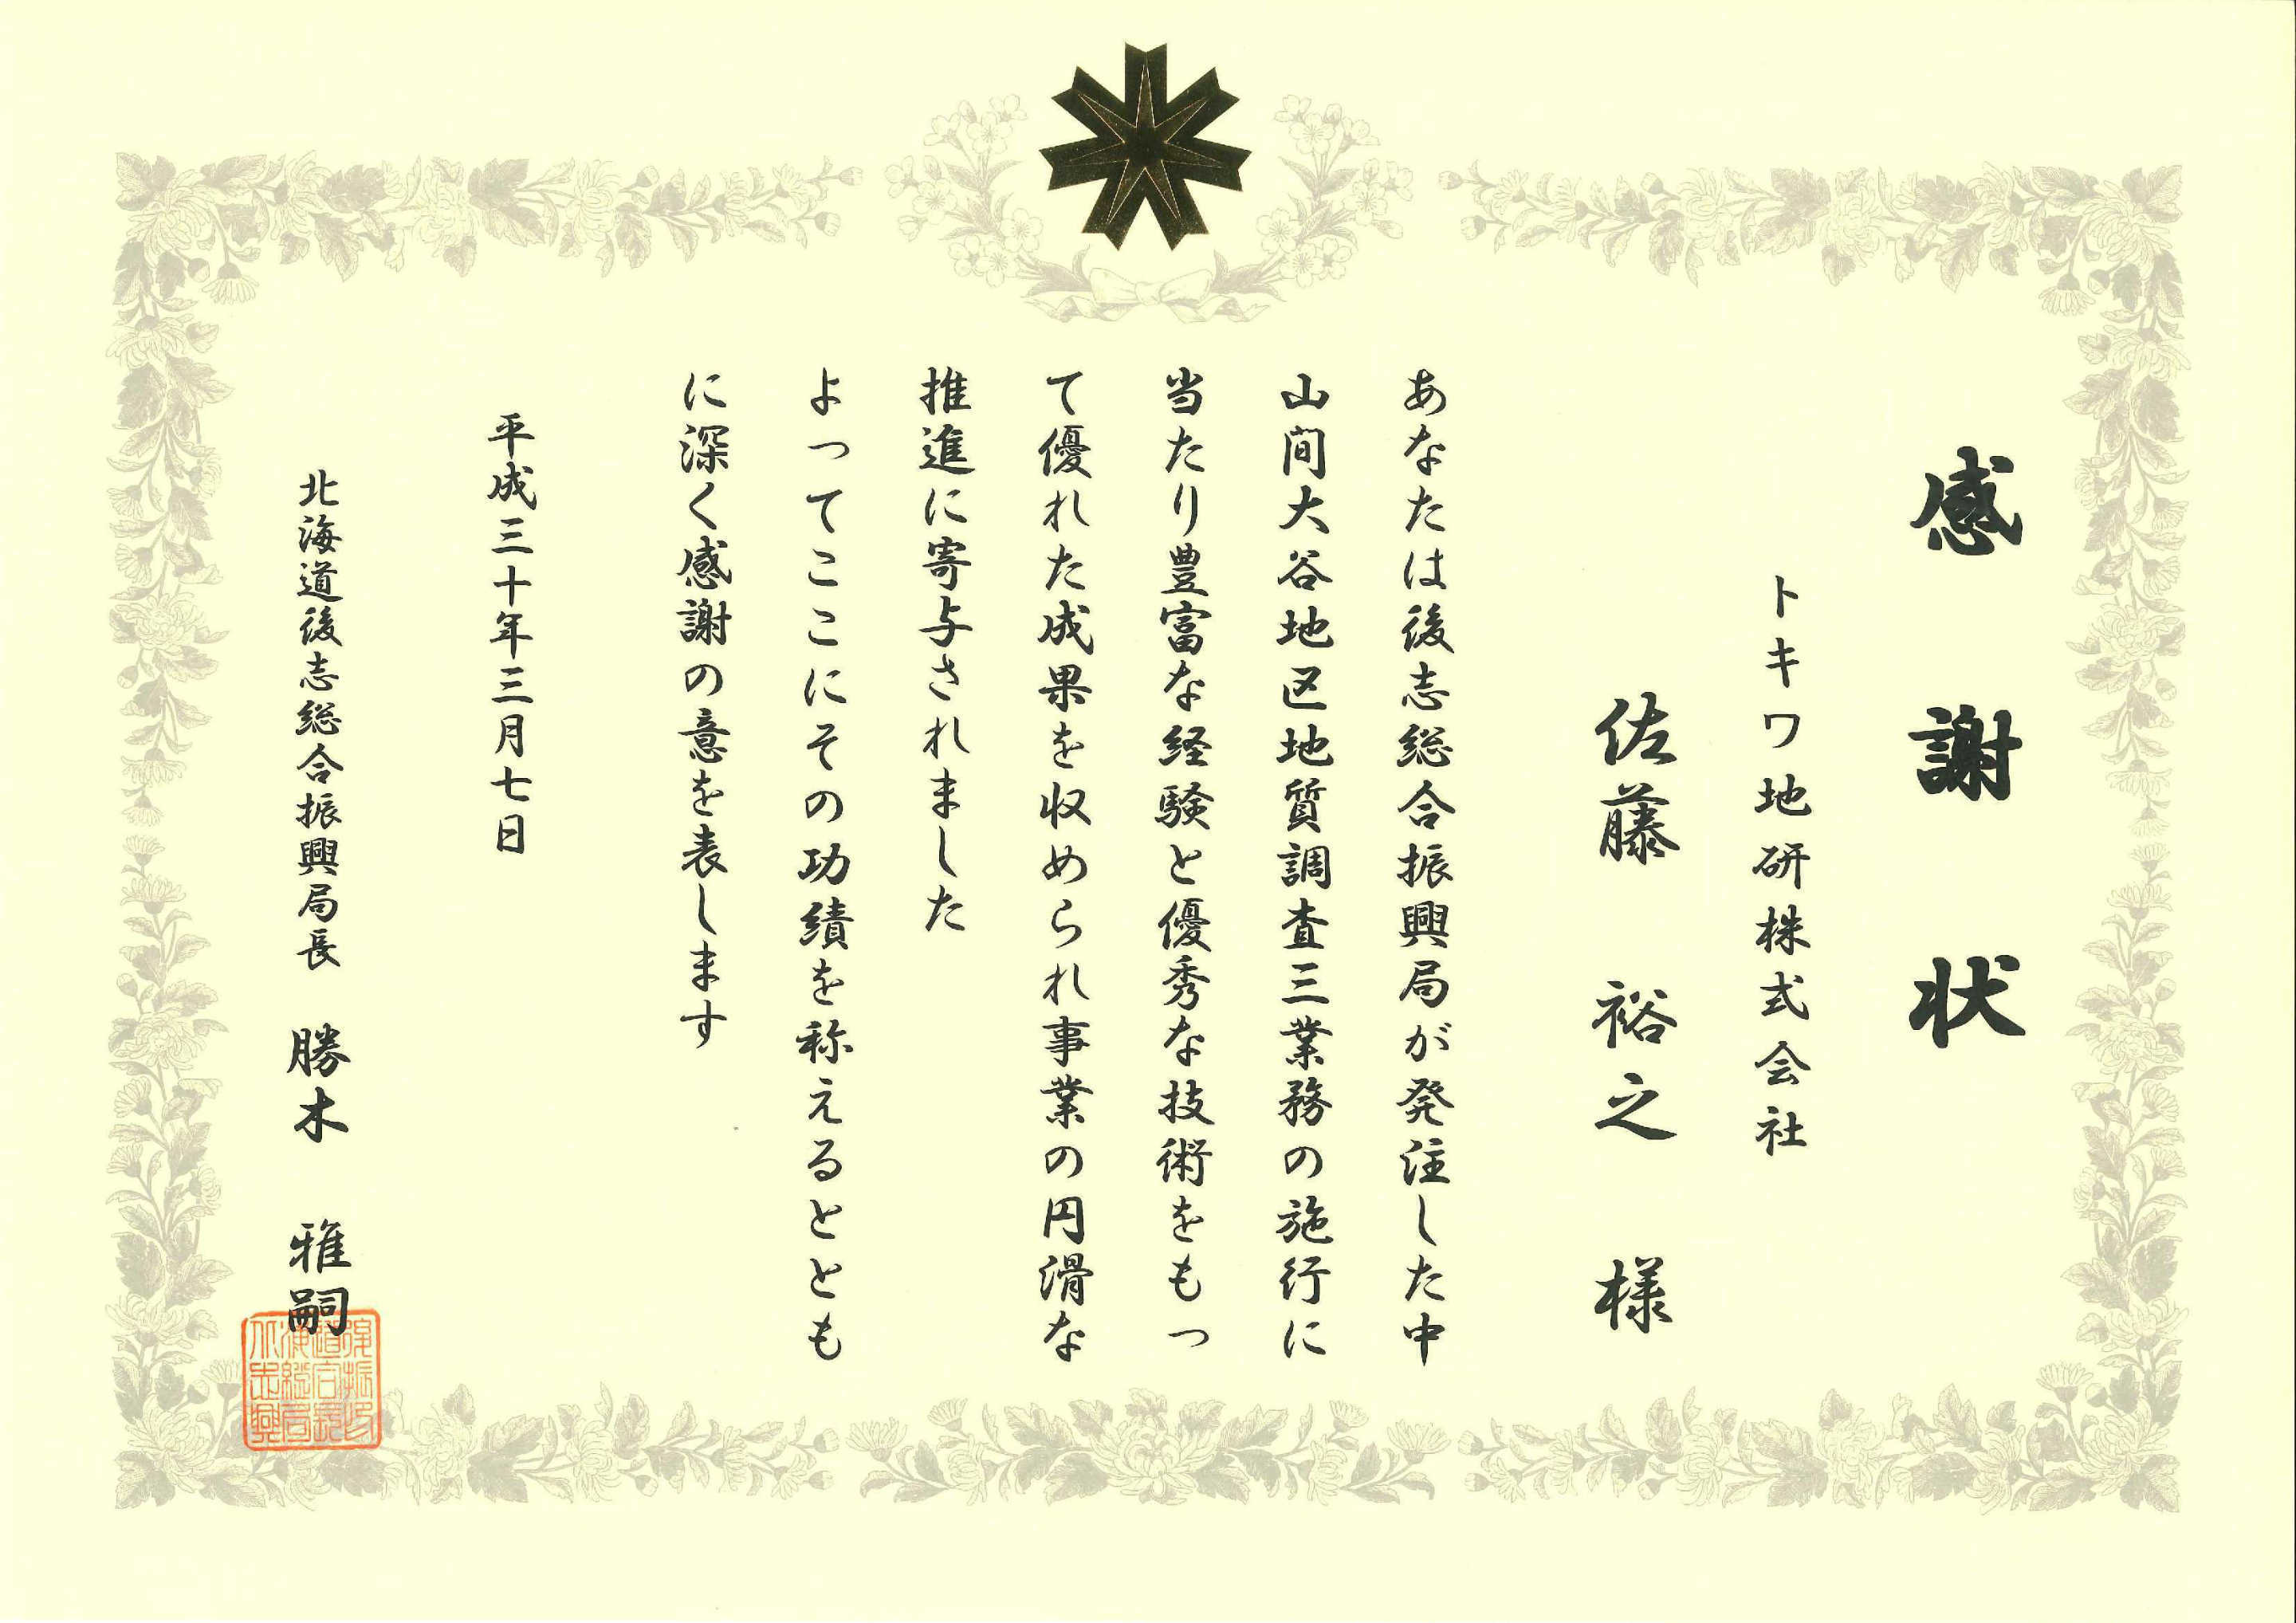 感謝状
トキワ地研株式会社
佐藤　裕之　様
あなたは後志総合振興局が発注した中
山間大谷地区地質調査三業務の施行に
当たり豊富な経験と優秀な技術をもっ
て優れた成果を収められ事業の円滑な
推進に寄与されました
よってここにその功績を称えるととも
に深く感謝の意を表します
平成三十年三月七日
北海道後志総合振興局長　勝木　雅嗣